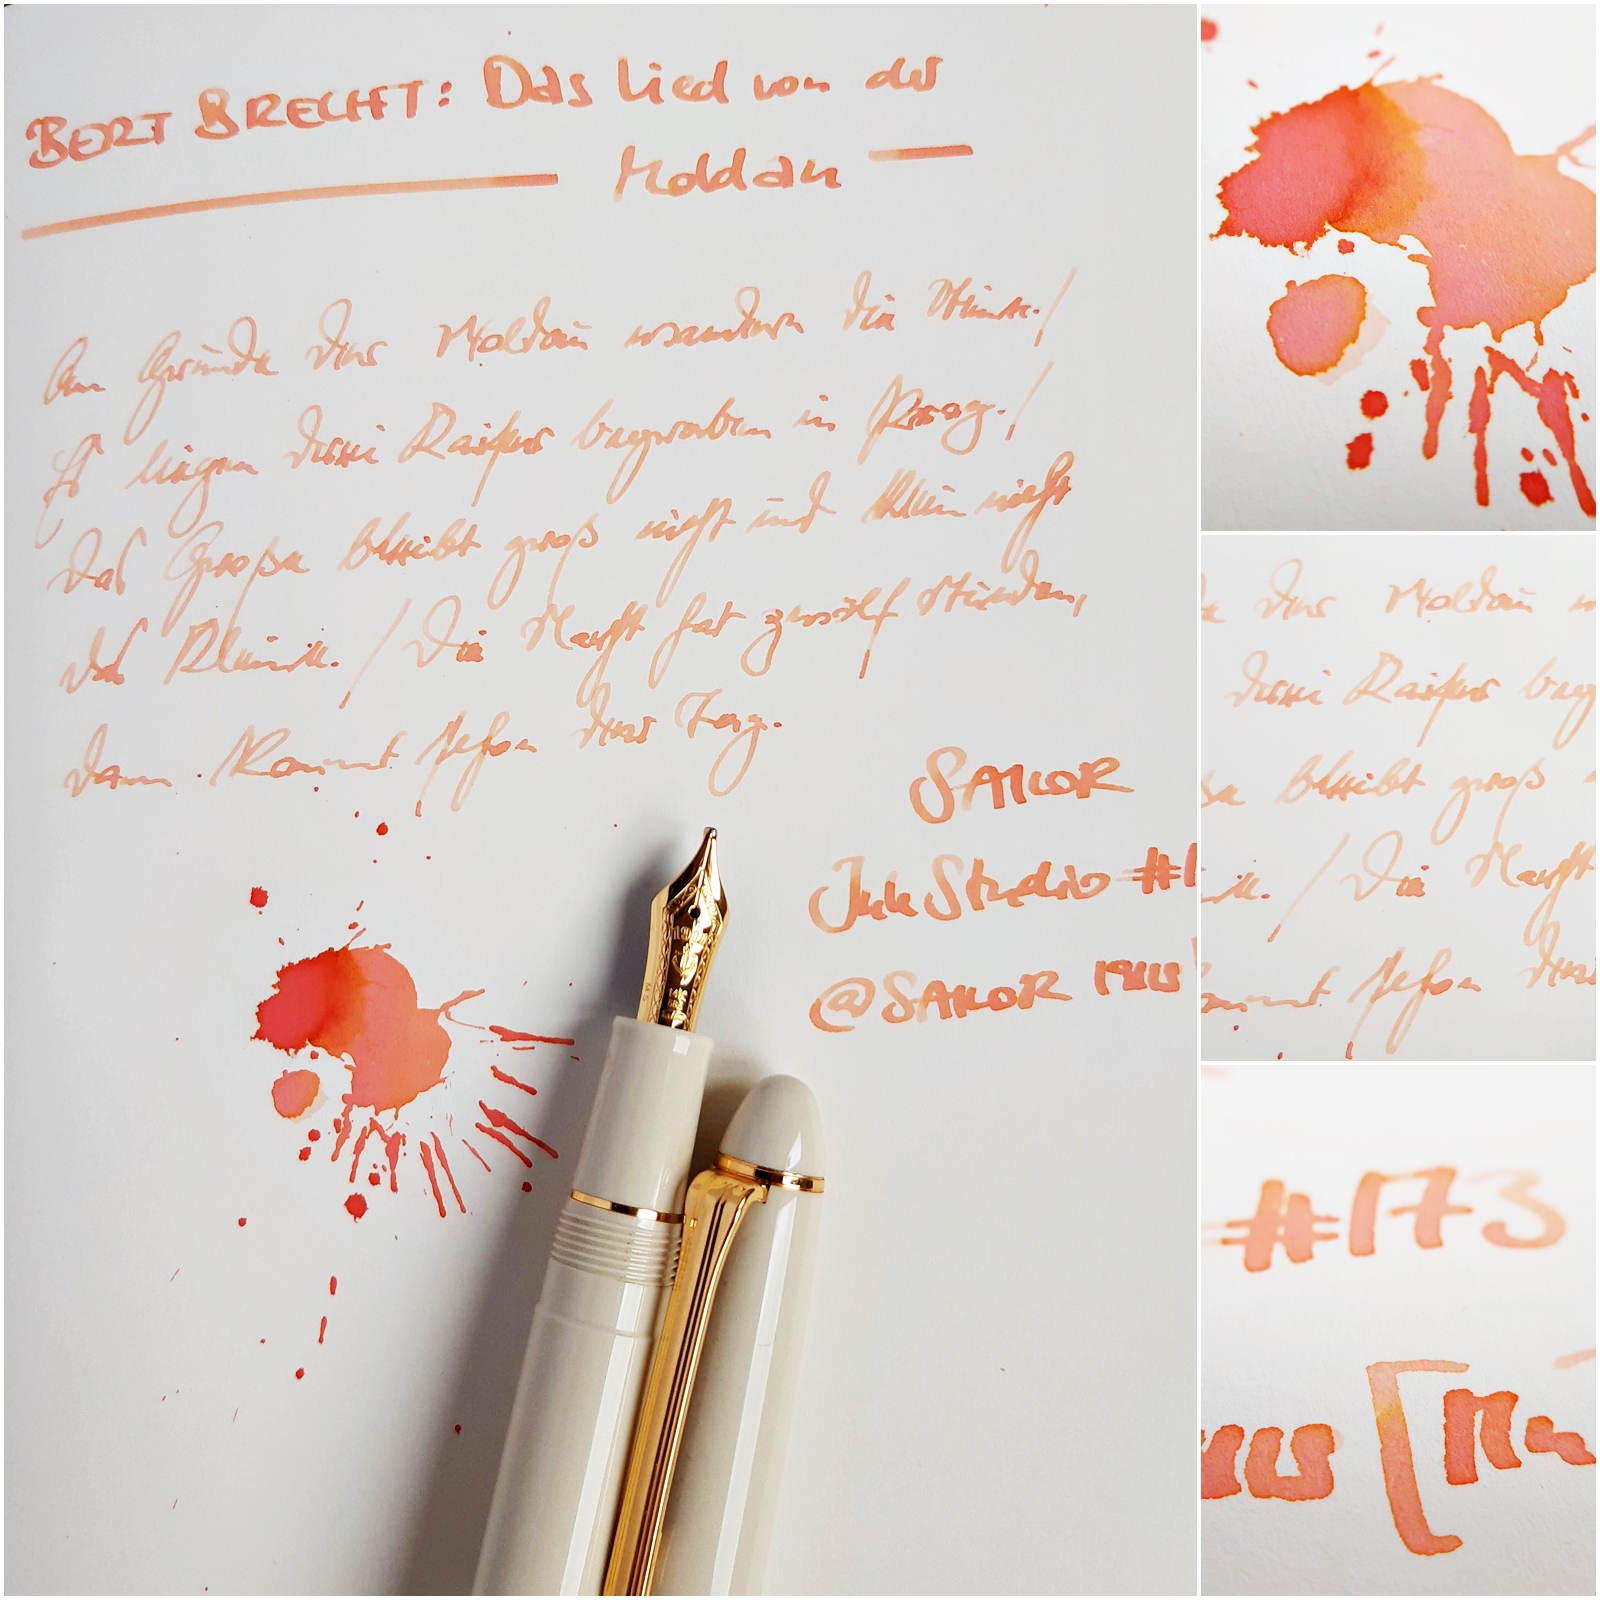 BERT BRECHT: Das Lied von der
Moldau
Am Grunde der Moldau wandern die Steine./
Es liegen drei Kaiser begraben in Prag./
Das Große bleibt groß nicht und klein nicht
das Kleine./ Die Nacht hat zwölf Stunden,
dann kommt schon der Tag.
SAILOR
Ink Studio #1
@SAILOR 1911
der Moldau
drei Kaiser
bleibt groß
/ Die Nacht
schon der
#173
[